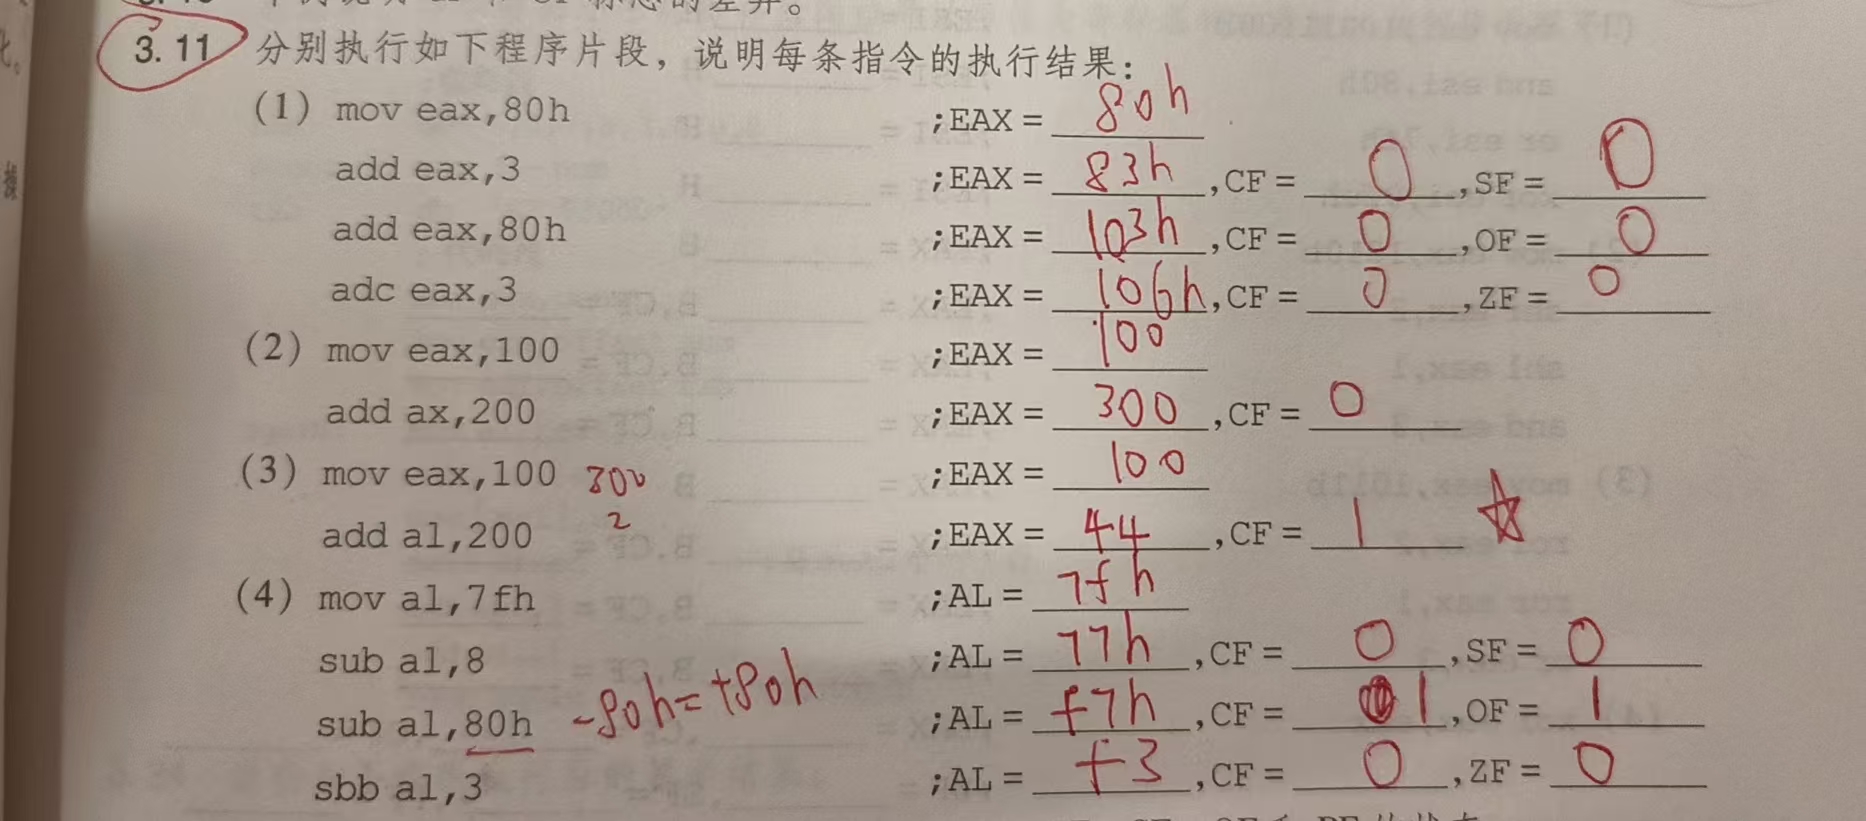 个例说明 和 标志的差异。
3.11 分别执行如下程序片段，说明每条指令的执行结果：
(1) mov eax,80h ;EAX = 80h
add eax,3 ;EAX = 83h ,CF = 0 ,SF = 0
add eax,80h ;EAX = 103h ,CF = 0 ,OF = 0
adc eax,3 ;EAX = 106h ,CF = 0 ,ZF = 0
(2) mov eax,100 ;EAX = 100
add ax,200 ;EAX = 300 ,CF = 0
(3) mov eax,100 300 ;EAX = 100
2
add al,200 ;EAX = 44 ,CF = 1 ☆
(4) mov al,7fh ;AL = 7fh
sub al,8 ;AL = 77h ,CF = 0 ,SF = 0
sub al,80h -80h=+80h ;AL = f7h ,CF = 1 ,OF = 1
sbb al,3 ;AL = f3 ,CF = 0 ,ZF = 0